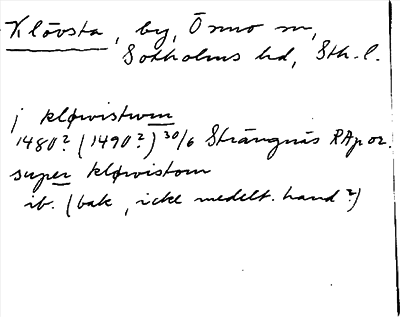 Klövsta, by, Ösmo sn,
Sotholms hd, Sth. l.
j kløwistwm
1480? (1490?) 30/6 Strängnäs RAp or.
super kløwistom
ib. (bak, icke medelt. hand?)